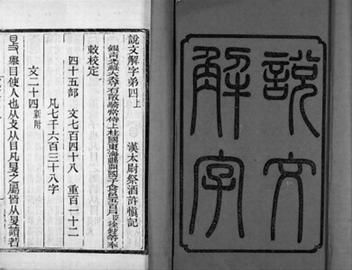 說文
解字
說文解字弟四上
漢太尉祭酒許慎記
銀青光祿大夫守右散騎常侍上柱國東海縣開國子食邑五百戶臣徐鉉等奉
敕校定
四十五部 文七百四十八 重百一十二
凡七千六百三十八字
文二十四新附
舉目使人也从攴从目凡𥄎之屬皆从𥄎讀若